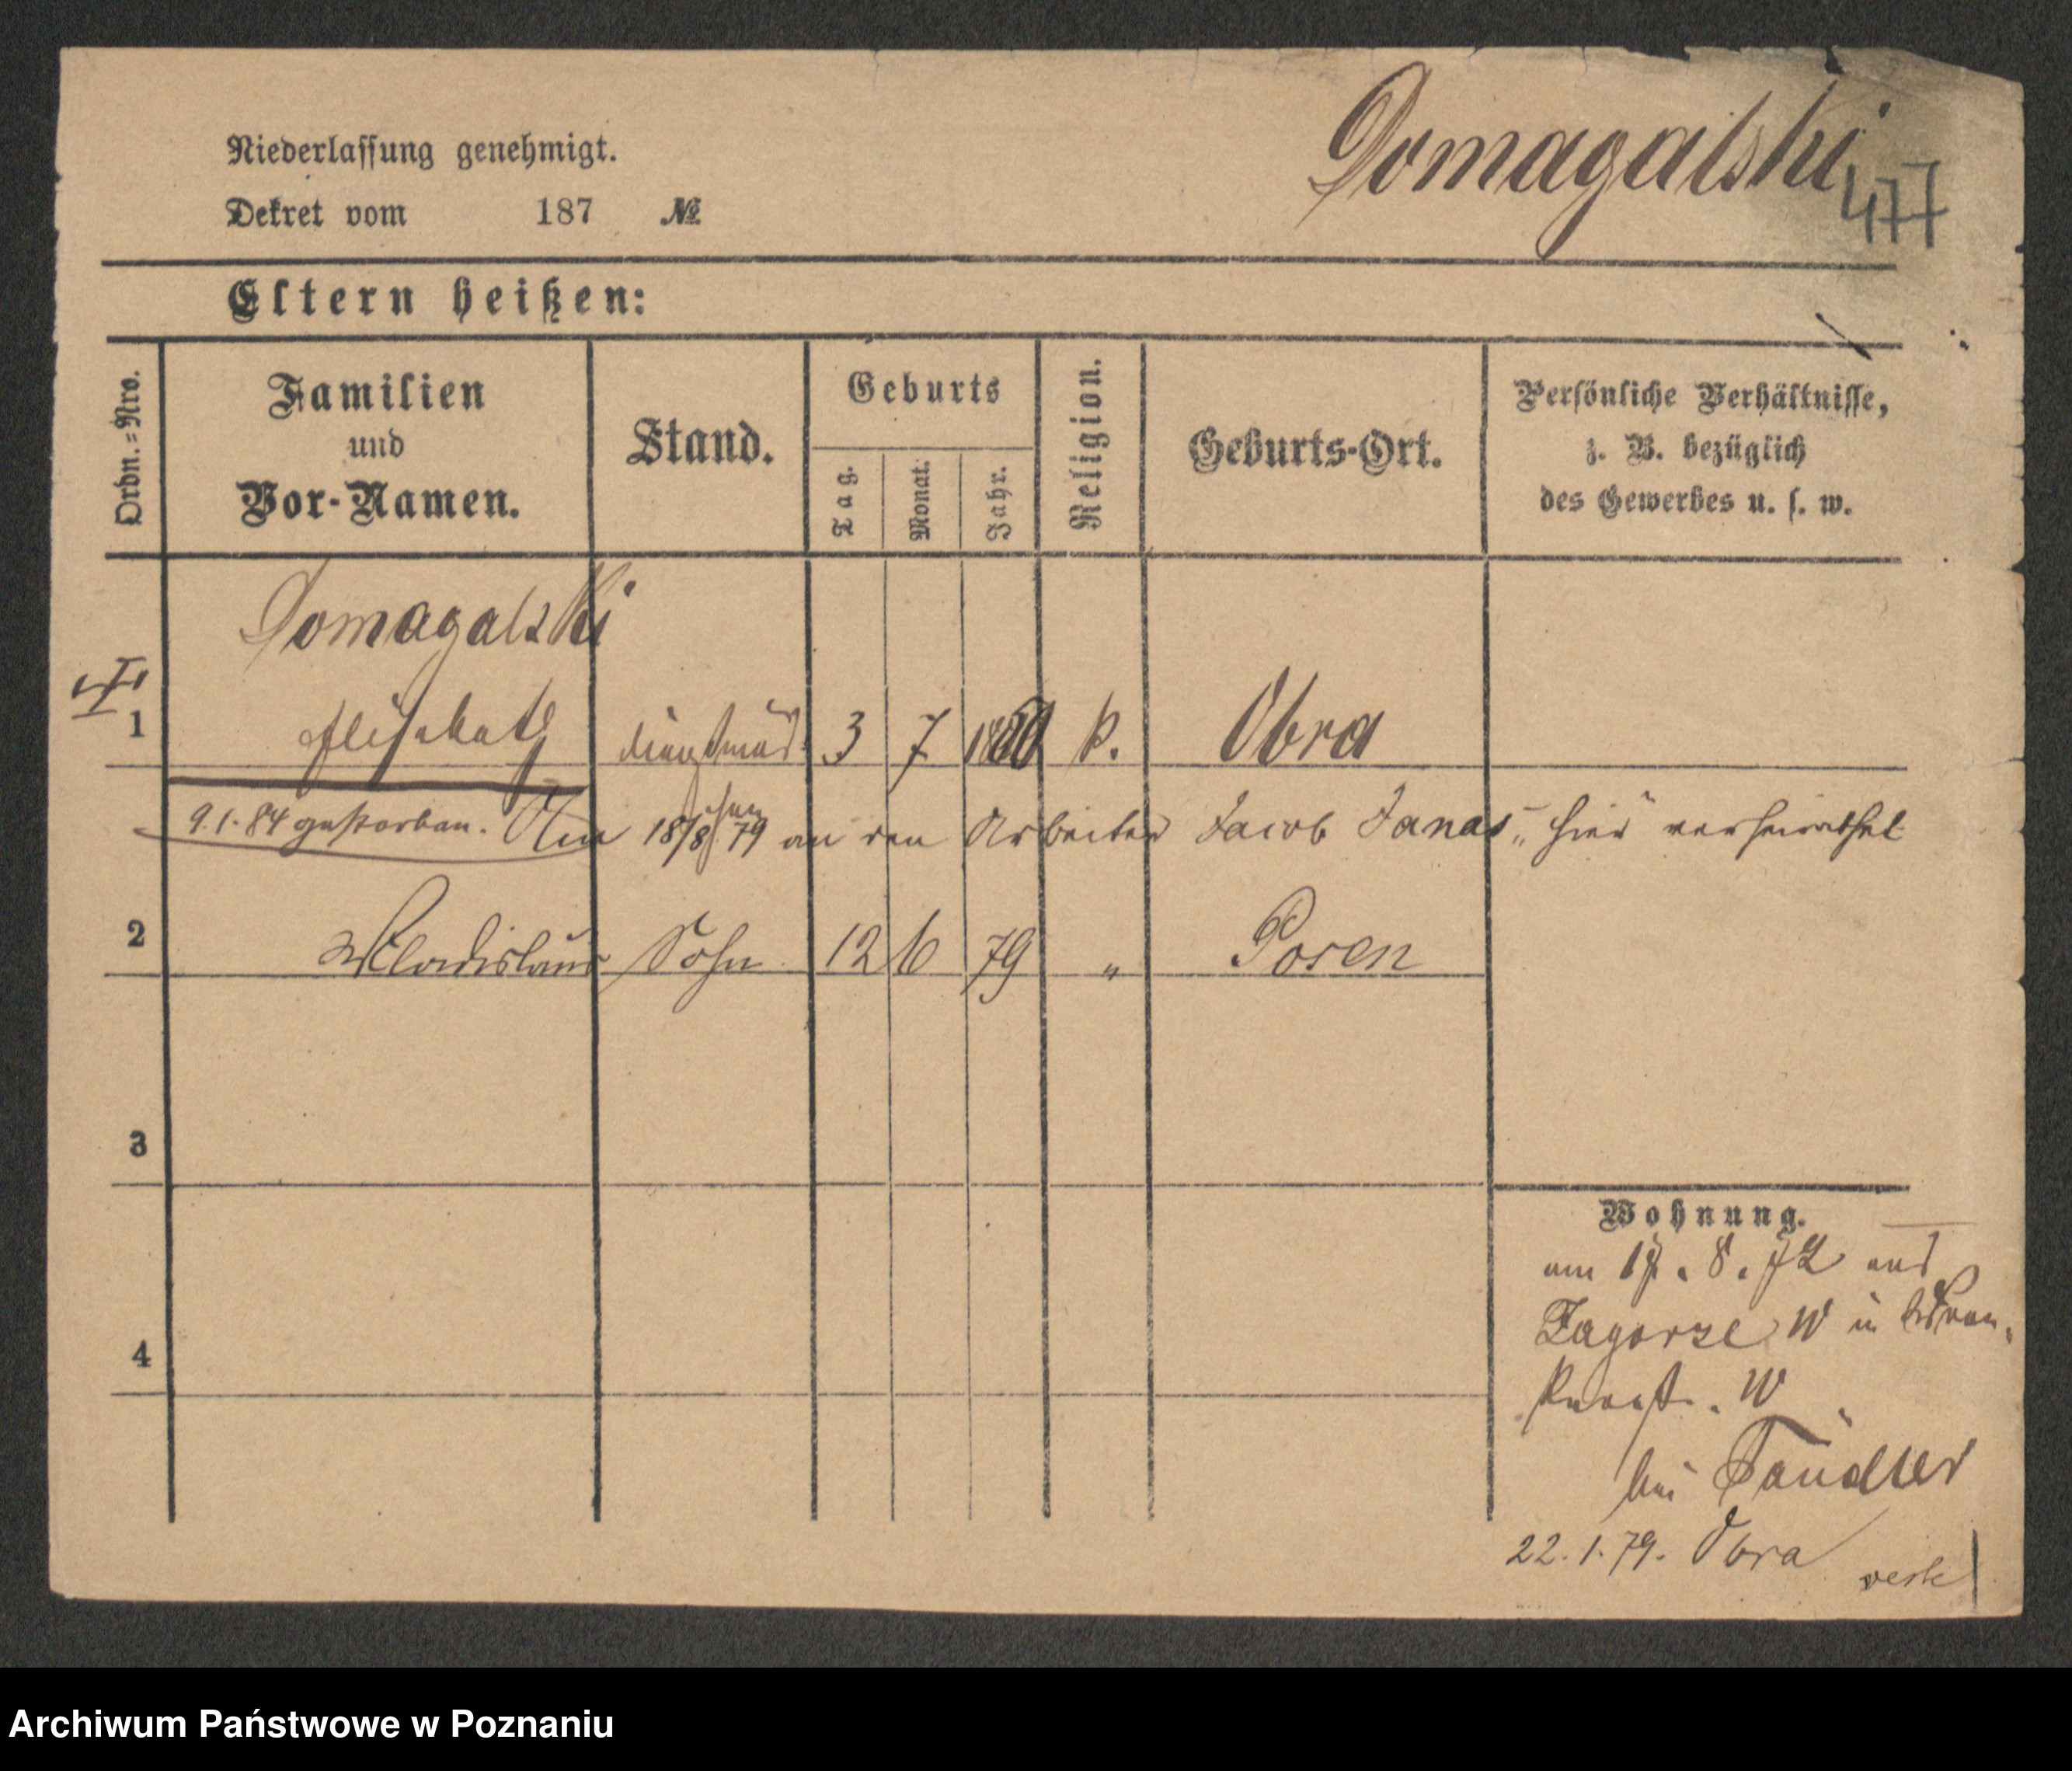 Domagalski
477
Niederlassung genehmigt.
Dekret vom 187 №
Eltern heißen:
Ordn.=Nro.
Familien
und
Vor-Namen.
Stand.
Geburts
Tag.
Monat.
Jahr.
Religion.
Geburts-Ort.
Persönliche Verhältnisse,
z. B. bezüglich
des Gewerbes u. s. w.
Domagalski
1 Elisabeth 3 7 Obra
9.1.84 gestorben. Am 18/8 79 an den Arbeiter Jacob Janas hier verheirathet
2 Wladislaus Sohn 12 6 79 " Posen
3
4
Wohnung.
am 8. 72 aus
Zagorze W in
W
bei
22.1.79. Obra
Archiwum Państwowe w Poznaniu